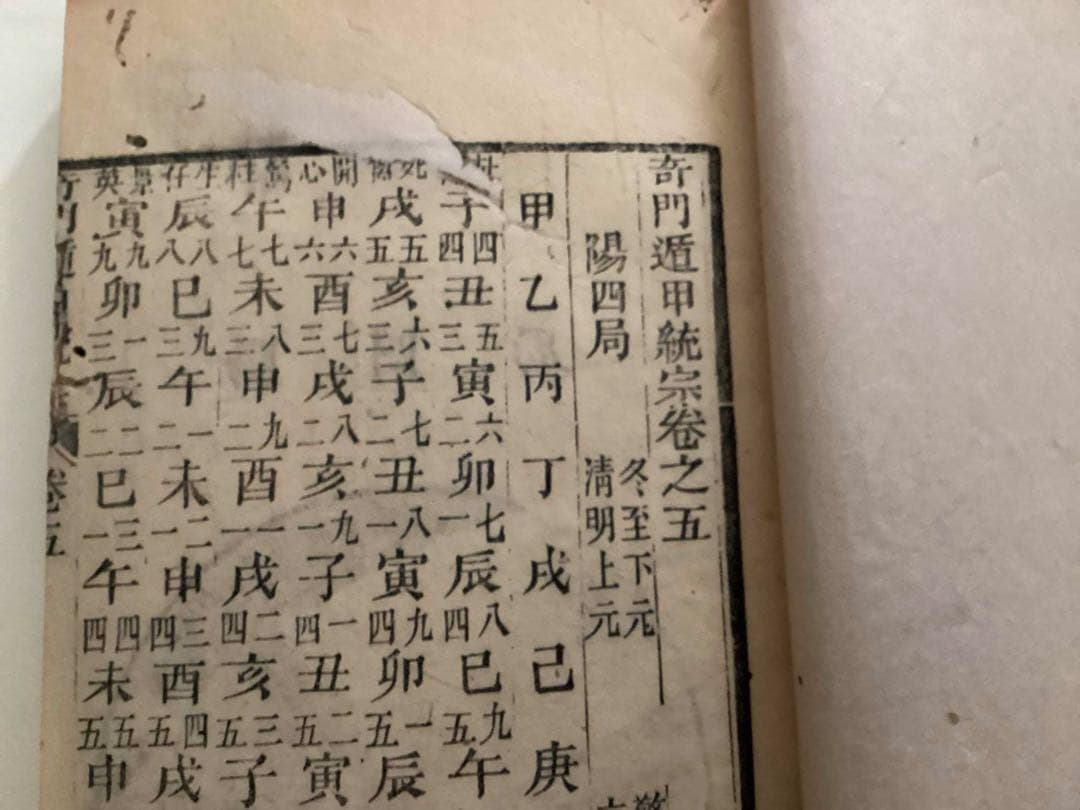 奇門遁甲統宗卷之五
陽四局
冬至下元
清明上元
甲乙丙丁戌己庚
子四四丑五三寅六二卯七一辰八四巳九五午
死禽戌五五亥六三子七二丑八一寅九四卯一五辰
開心申六六酉七三戌八二亥九一子一四丑二五寅
驚柱午七七未八三申九二酉一一戌二四亥三五子
生任辰八八巳九三午一二未二一申三四酉四五戌
景英寅九九卯一三辰二二巳三一午四四未五五申
奇門遁
卷五